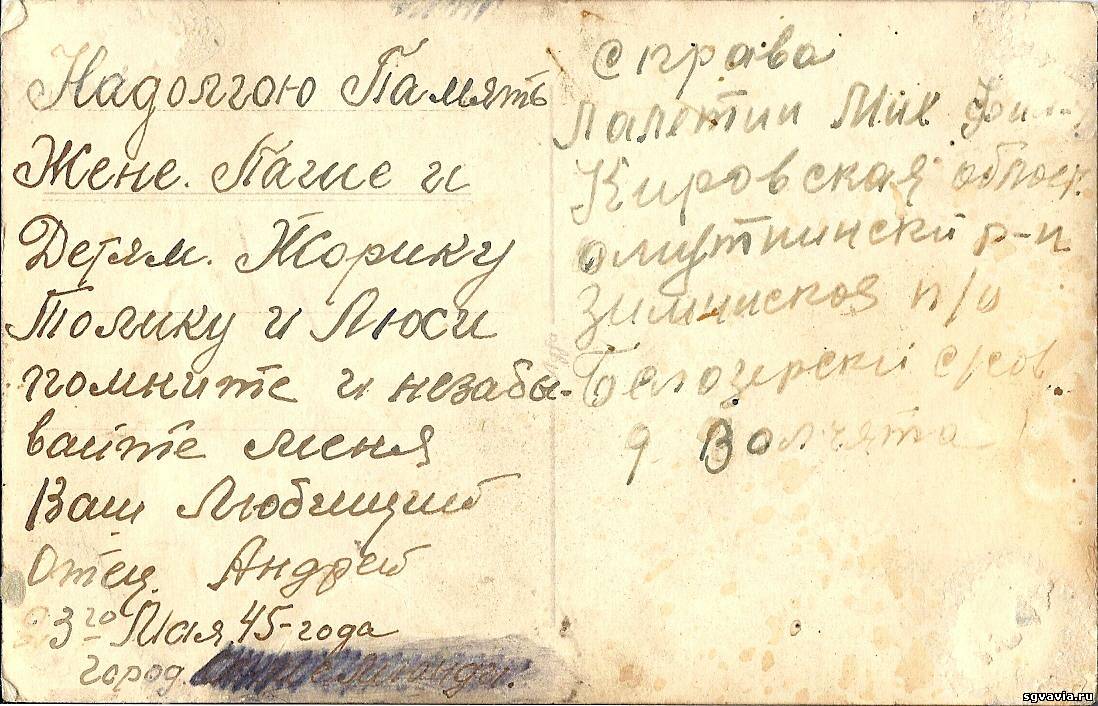 Надолгою Память
Жене. Пагие и
Детям. Жорику
Толику и Люси
помните и незабы-
вайте меня
Ваш Любищий
Отец. Андрей
3го Мая 45-года
город.
справа
Лалетин Мих Фил
Кировская област.
омутнински р-н
Зимнискоя п/о
Белозерски с/сов.
д. Волчята
sgvavia.ru